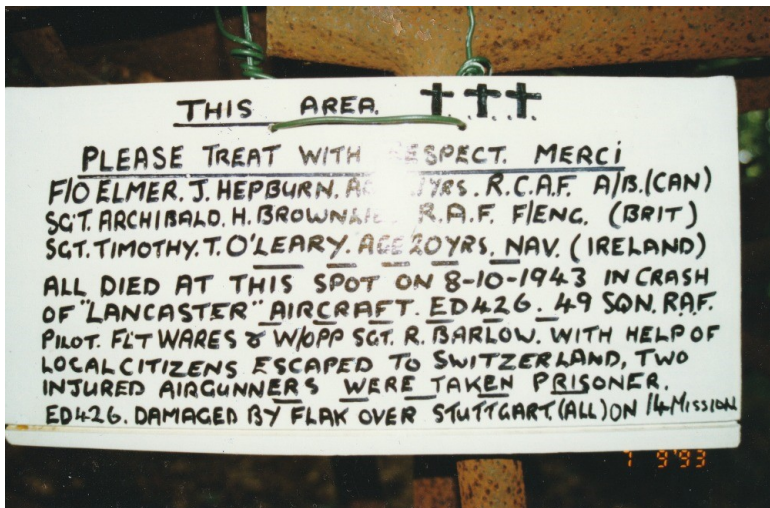 THIS AREA.
PLEASE TREAT WITH RESPECT. MERCi
F/O ELMER. J. HEPBURN. YRS. R.C.A.F. A/B.(CAN)
SGT. ARCHIBALD. H. R.A.F. F/ENG. (BRIT)
SGT. TIMOTHY. T. O'LEARY. AGE 20YRS. NAV. (IRELAND)
ALL DIED AT THIS SPOT ON 8-10-1943 IN CRASH
OF "LANCASTER" AIRCRAFT. ED426. 49 SQN. RAF.
PILOT. FLT WARES & W/OPP SGT. R. BARLOW. WITH HELP OF
LOCAL CITIZENS ESCAPED TO SWITZERLAND, TWO
INJURED AIRGUNNERS WERE TAKEN PRISONER.
ED426. DAMAGED BY FLAK OVER STUTTGART.(ALL) ON 14 MISSION
9'93